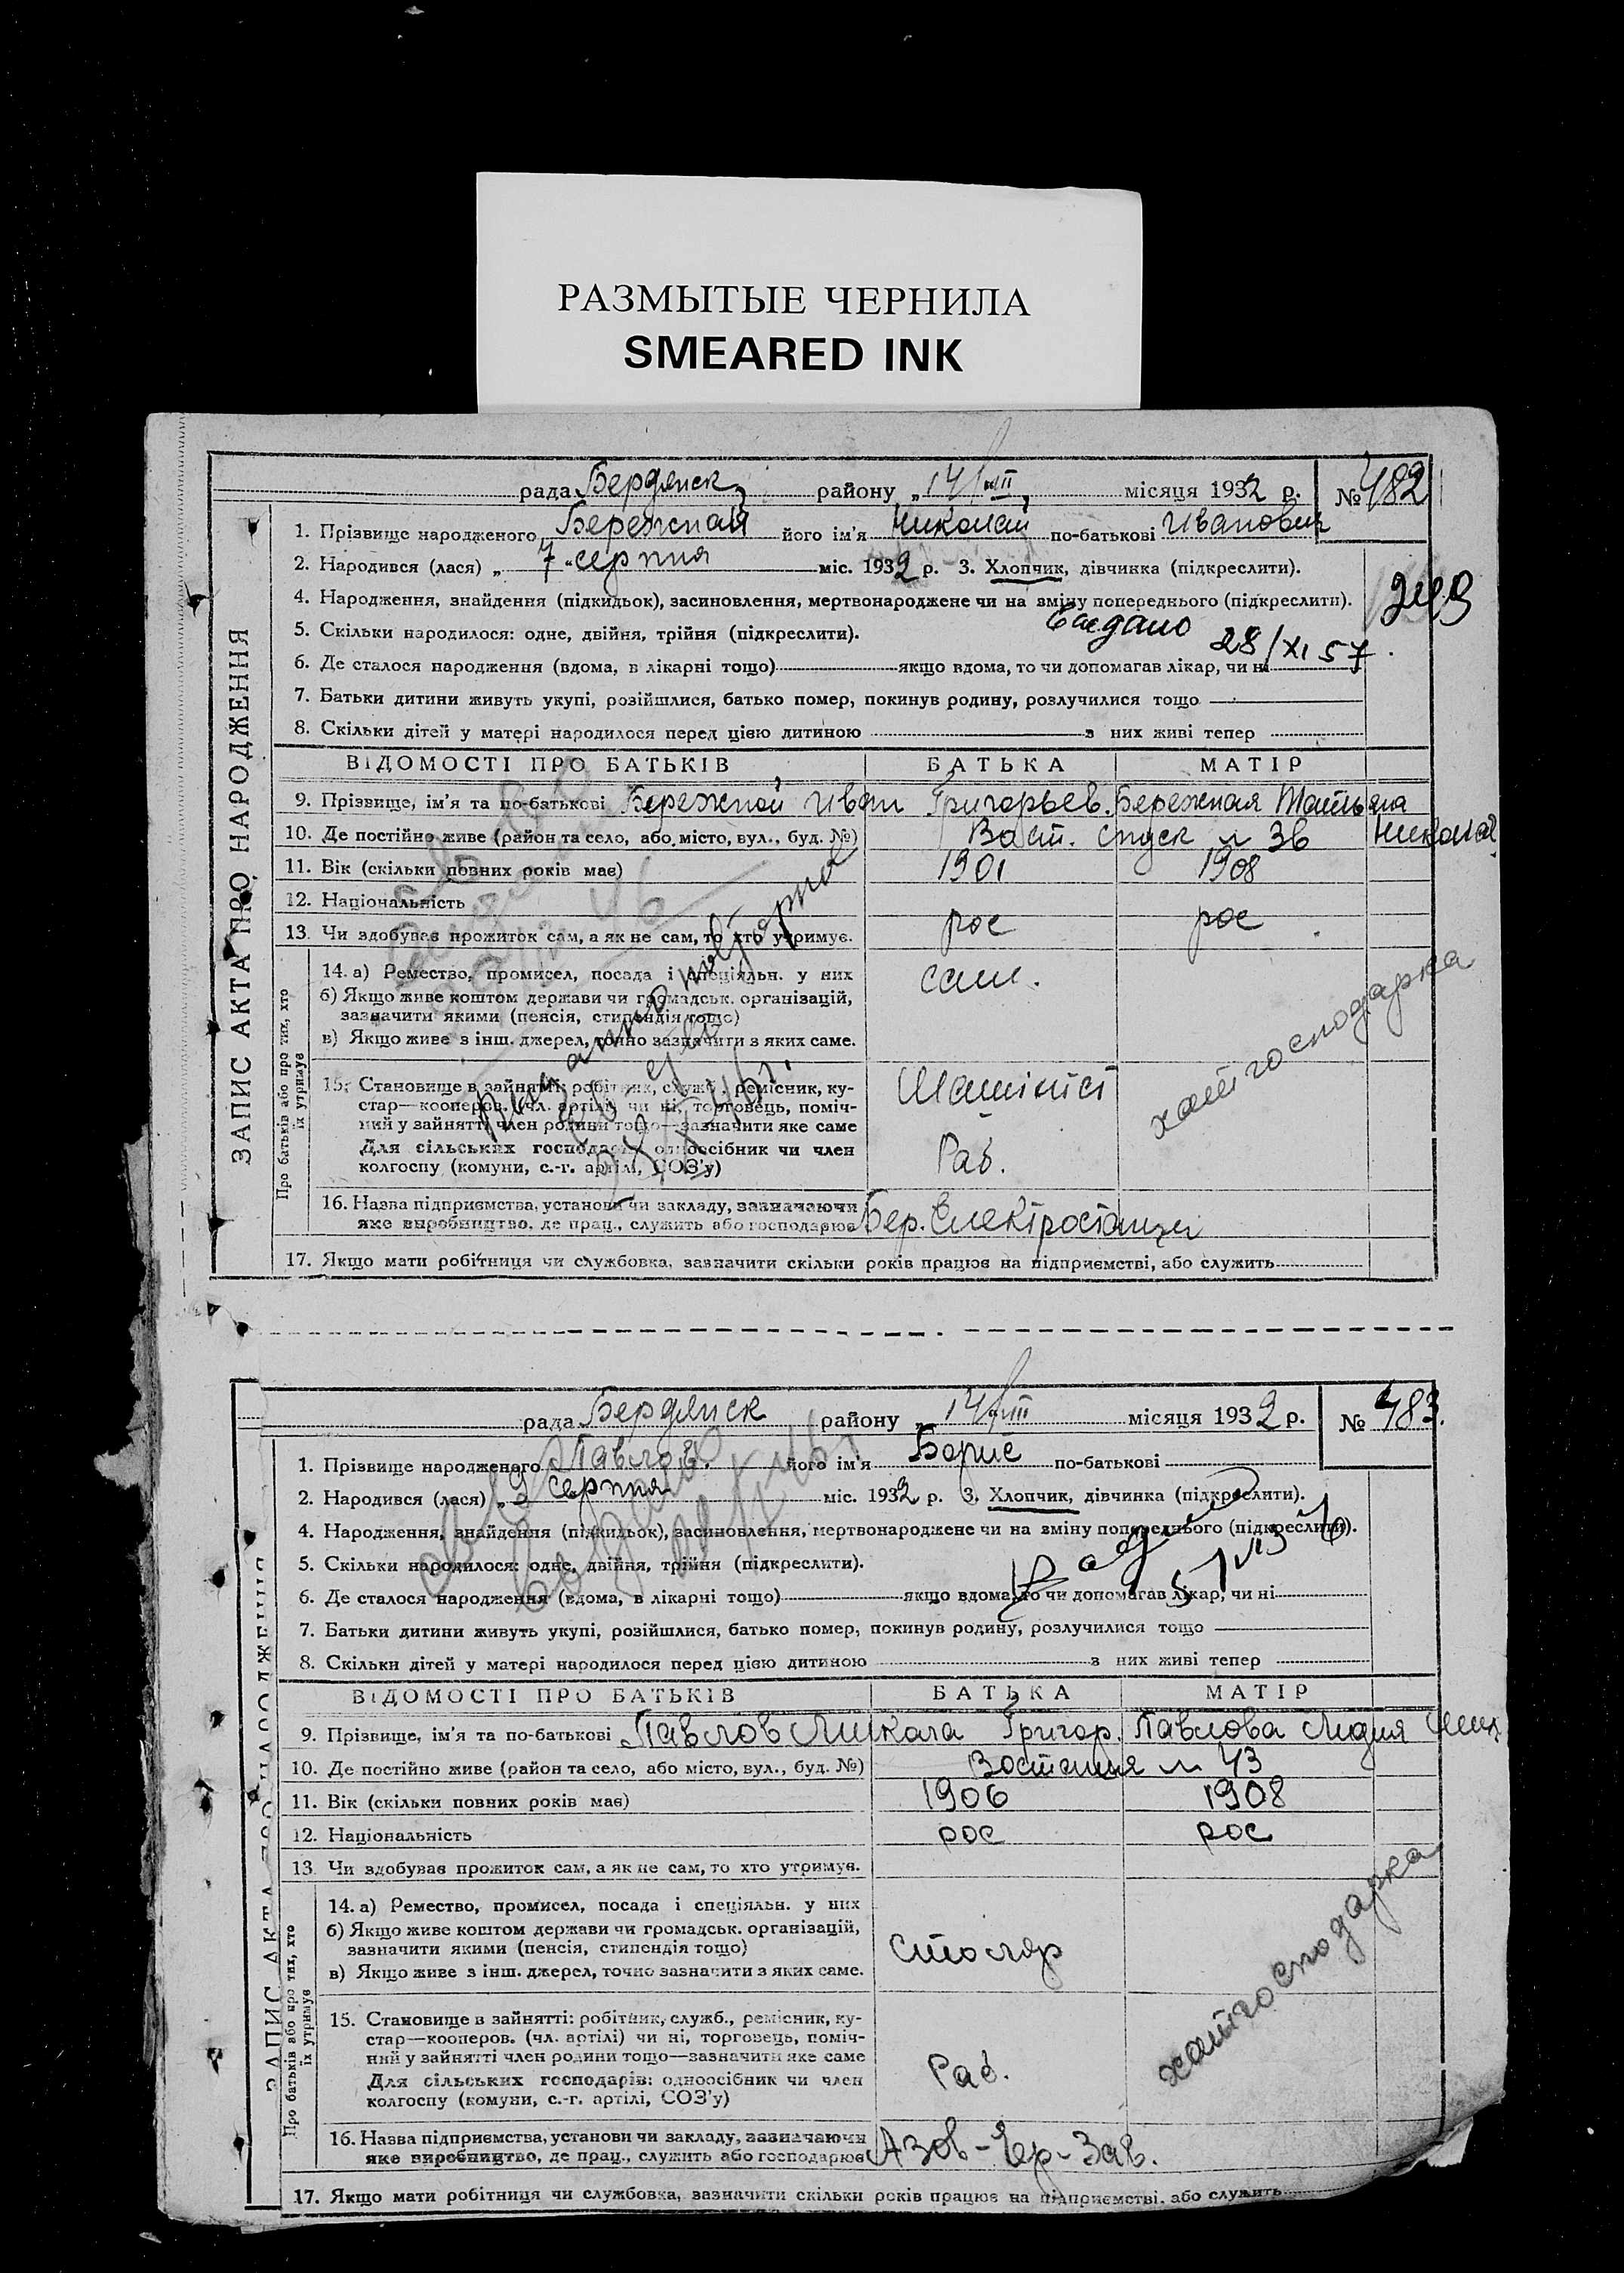 РАЗМЫТЫЕ ЧЕРНИЛА
SMEARED INK
рада Бердянск району „14/VIII місяця 1932 р. № 482
1. Прізвище народженого Бережная його ім'я Николай по-батькові Иванович
2. Народився (лася) „ 7 " серпня міс. 1932 р. 3. Хлопчик, дівчинка (підкреслити).
4. Народження, знайдення (підкидьок), засиновлення, мертвонароджене чи на зміну попереднього (підкреслити).
5. Скільки народилося: одне, двійня, трійня (підкреслити).
28/XI 57
6. Де сталося народження (вдома, в лікарні тощо) якщо вдома, то чи допомагав лікар, чи ні
7. Батьки дитини живуть укупі, розійшлися, батько помер, покинув родину, розлучилися тощо
8. Скільки дітей у матері народилося перед цією дитиною з них живі тепер
ЗАПИС АКТА ПРО НАРОДЖЕННЯ
ВІДОМОСТІ ПРО БАТЬКІВ БАТЬКА МАТІР
9. Прізвище, ім'я та по-батькові Бережной Иван Григорьев. Бережная Татьяна
10. Де постійно живе (район та село, або місто, вул., буд. №) Васт. спуск № 36
11. Вік (скільки повних років має) 1901 1908
12. Національність
рос рос
13. Чи здобуває прожиток сам, а як не сам, то хто утримує.
сам.
Про батьків або про тих, хто їх утримує
14. а) Ремество, промисел, посада і спеціяльн. у них
б) Якщо живе коштом держави чи громадськ. організацій,
зазначити якими (пенсія, стипендія тощо)
в) Якщо живе з інш. джерел, точно зазначити з яких саме.
хатгосподарка
15. Становище в зайнятті: робітник, служб., ремісник, ку-
стар—кооперов. (чл. артілі) чи ні, торговець, поміч-
ний у зайнятті член родини тощо—зазначити яке саме
Для сільських господарів: одноосібник чи член
колгоспу (комуни, с.-г. артілі, СОЗ'у)
Машиніст
Раб.
16. Назва підприємства, установи чи закладу, зазначаючи
яке виробництво, де прац., служить або господарює Бер. Електростанци
17. Якщо мати робітниця чи службовка, зазначити скільки років працює на підприємстві, або служить
рада Бердянск району „14/VIII місяця 1932 р. № 483.
1. Прізвище народженого Павлов. його ім'я Борис по-батькові
2. Народився (лася) „ 2 серпня міс. 1932 р. 3. Хлопчик, дівчинка (підкреслити).
4. Народження, знайдення (підкидьок), засиновлення, мертвонароджене чи на зміну попереднього (підкреслити).
5. Скільки народилося: одне, двійня, трійня (підкреслити).
6. Де сталося народження (вдома, в лікарні тощо) якщо вдома, то чи допомагав лікар, чи ні
7. Батьки дитини живуть укупі, розійшлися, батько помер, покинув родину, розлучилися тощо
8. Скільки дітей у матері народилося перед цією дитиною з них живі тепер
ВІДОМОСТІ ПРО БАТЬКІВ БАТЬКА МАТІР
9. Прізвище, ім'я та по-батькові Павлов Микола Григор. Павлова Лидия
10. Де постійно живе (район та село, або місто, вул., буд. №) Востания № 43
11. Вік (скільки повних років має) 1906 1908
12. Національність рос рос
13. Чи здобуває прожиток сам, а як не сам, то хто утримує.
Про батьків або про тих, хто їх утримує
14. а) Ремество, промисел, посада і спеціяльн. у них
б) Якщо живе коштом держави чи громадськ. організацій,
зазначити якими (пенсія, стипендія тощо)
в) Якщо живе з інш. джерел, точно зазначити з яких саме.
Столяр
хатгосподарка
15. Становище в зайнятті: робітник, служб., ремісник, ку-
стар—кооперов. (чл. артілі) чи ні, торговець, поміч-
ний у зайнятті член родини тощо—зазначити яке саме
Для сільських господарів: одноосібник чи член
колгоспу (комуни, с.-г. артілі, СОЗ'у)
Раб.
16. Назва підприємства, установи чи закладу, зазначаючи
яке виробництво, де прац., служить або господарює Азов-Чер-Зав.
17. Якщо мати робітниця чи службовка, зазначити скільки років працює на підприємстві, або служить